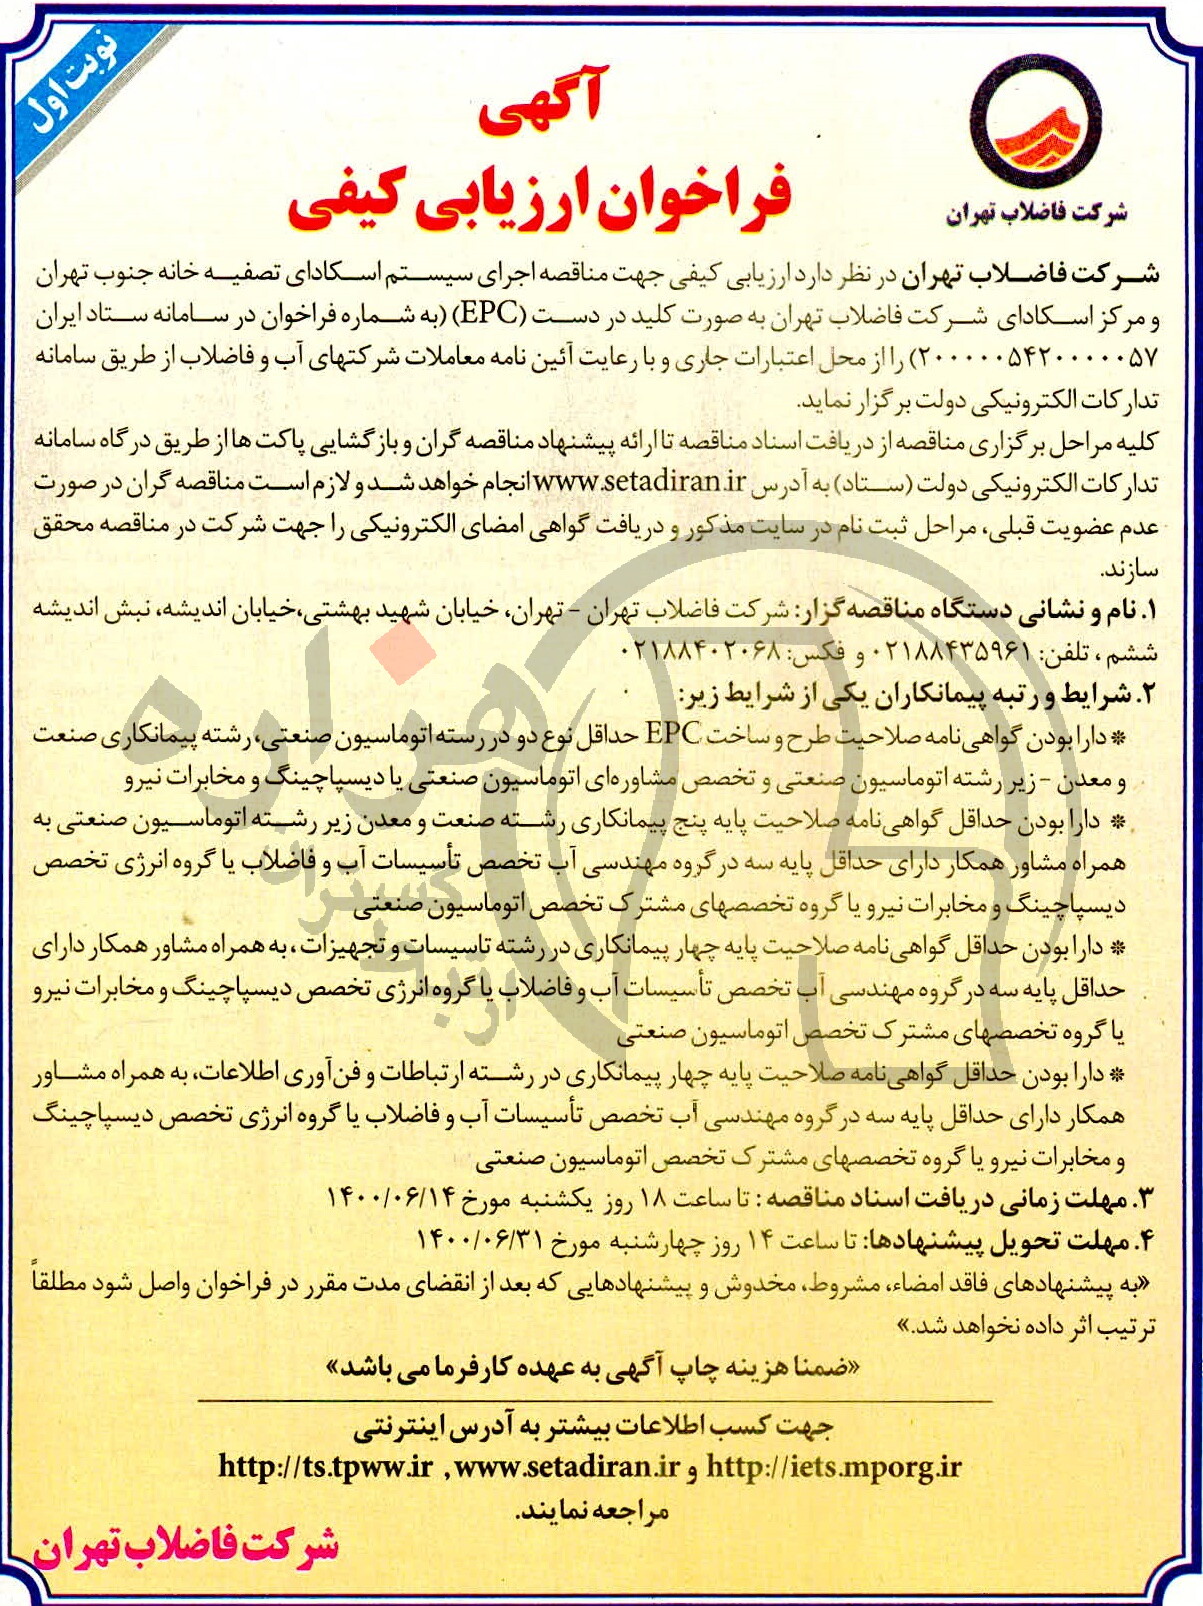 نوبت اول
شرکت فاضلاب تهران
آگهی
فراخوان ارزیابی کیفی
شرکت فاضلاب تهران در نظر دارد ارزیابی کیفی جهت مناقصه اجرای سیستم اسکادای تصفیه خانه جنوب تهران
و مرکز اسکادای شرکت فاضلاب تهران به صورت کلید در دست (EPC) (به شماره فراخوان در سامانه ستاد ایران
۲۰۰۰۰۰۵۴۲۰۰۰۰۰۵۷) را از محل اعتبارات جاری و با رعایت آئین نامه معاملات شرکتهای آب و فاضلاب از طریق سامانه
تدارکات الکترونیکی دولت برگزار نماید.
کلیه مراحل برگزاری مناقصه از دریافت اسناد مناقصه تا ارائه پیشنهاد مناقصه گران و بازگشایی پاکت ها از طریق درگاه سامانه
تدارکات الکترونیکی دولت (ستاد) به آدرس www.setadiran.ir انجام خواهد شد و لازم است مناقصه گران در صورت
عدم عضویت قبلی، مراحل ثبت نام در سایت مذکور و دریافت گواهی امضای الکترونیکی را جهت شرکت در مناقصه محقق
سازند.
۱. نام و نشانی دستگاه مناقصه‌گزار: شرکت فاضلاب تهران - تهران، خیابان شهید بهشتی،خیابان اندیشه، نبش اندیشه
ششم ، تلفن: ۰۲۱۸۸۴۳۵۹۶۱ و فکس: ۰۲۱۸۸۴۰۲۰۶۸
۲. شرایط و رتبه پیمانکاران یکی از شرایط زیر:
* دارا بودن گواهی‌نامه صلاحیت طرح و ساخت EPC حداقل نوع دو در رسته اتوماسیون صنعتی، رشته پیمانکاری صنعت
و معدن - زیر رشته اتوماسیون صنعتی و تخصص مشاوره‌ای اتوماسیون صنعتی یا دیسپاچینگ و مخابرات نیرو
* دارا بودن حداقل گواهی‌نامه صلاحیت پایه پنج پیمانکاری رشته صنعت و معدن زیر رشته اتوماسیون صنعتی به
همراه مشاور همکار دارای حداقل پایه سه در گروه مهندسی آب تخصص تأسیسات آب و فاضلاب یا گروه انرژی تخصص
دیسپاچینگ و مخابرات نیرو یا گروه تخصصهای مشترک تخصص اتوماسیون صنعتی
* دارا بودن حداقل گواهی‌نامه صلاحیت پایه چهار پیمانکاری در رشته تاسیسات و تجهیزات ، به همراه مشاور همکار دارای
حداقل پایه سه در گروه مهندسی آب تخصص تأسیسات آب و فاضلاب یا گروه انرژی تخصص دیسپاچینگ و مخابرات نیرو
یا گروه تخصصهای مشترک تخصص اتوماسیون صنعتی
* دارا بودن حداقل گواهی‌نامه صلاحیت پایه چهار پیمانکاری در رشته ارتباطات و فن‌آوری اطلاعات، به همراه مشاور
همکار دارای حداقل پایه سه در گروه مهندسی آب تخصص تأسیسات آب و فاضلاب یا گروه انرژی تخصص دیسپاچینگ
و مخابرات نیرو یا گروه تخصصهای مشترک تخصص اتوماسیون صنعتی
۳. مهلت زمانی دریافت اسناد مناقصه : تا ساعت ۱۸ روز یکشنبه مورخ ۱۴۰۰/۰۶/۱۴
۴. مهلت تحویل پیشنهادها: تا ساعت ۱۴ روز چهارشنبه مورخ ۱۴۰۰/۰۶/۳۱
«به پیشنهادهای فاقد امضاء، مشروط، مخدوش و پیشنهادهایی که بعد از انقضای مدت مقرر در فراخوان واصل شود مطلقاً
ترتیب اثر داده نخواهد شد.»
«ضمنا هزینه چاپ آگهی به عهده کارفرما می باشد»
جهت کسب اطلاعات بیشتر به آدرس اینترنتی
http://iets.mporg.ir و www.setadiran.ir, http://ts.tpww.ir
مراجعه نمایند.
شرکت فاضلاب تهران